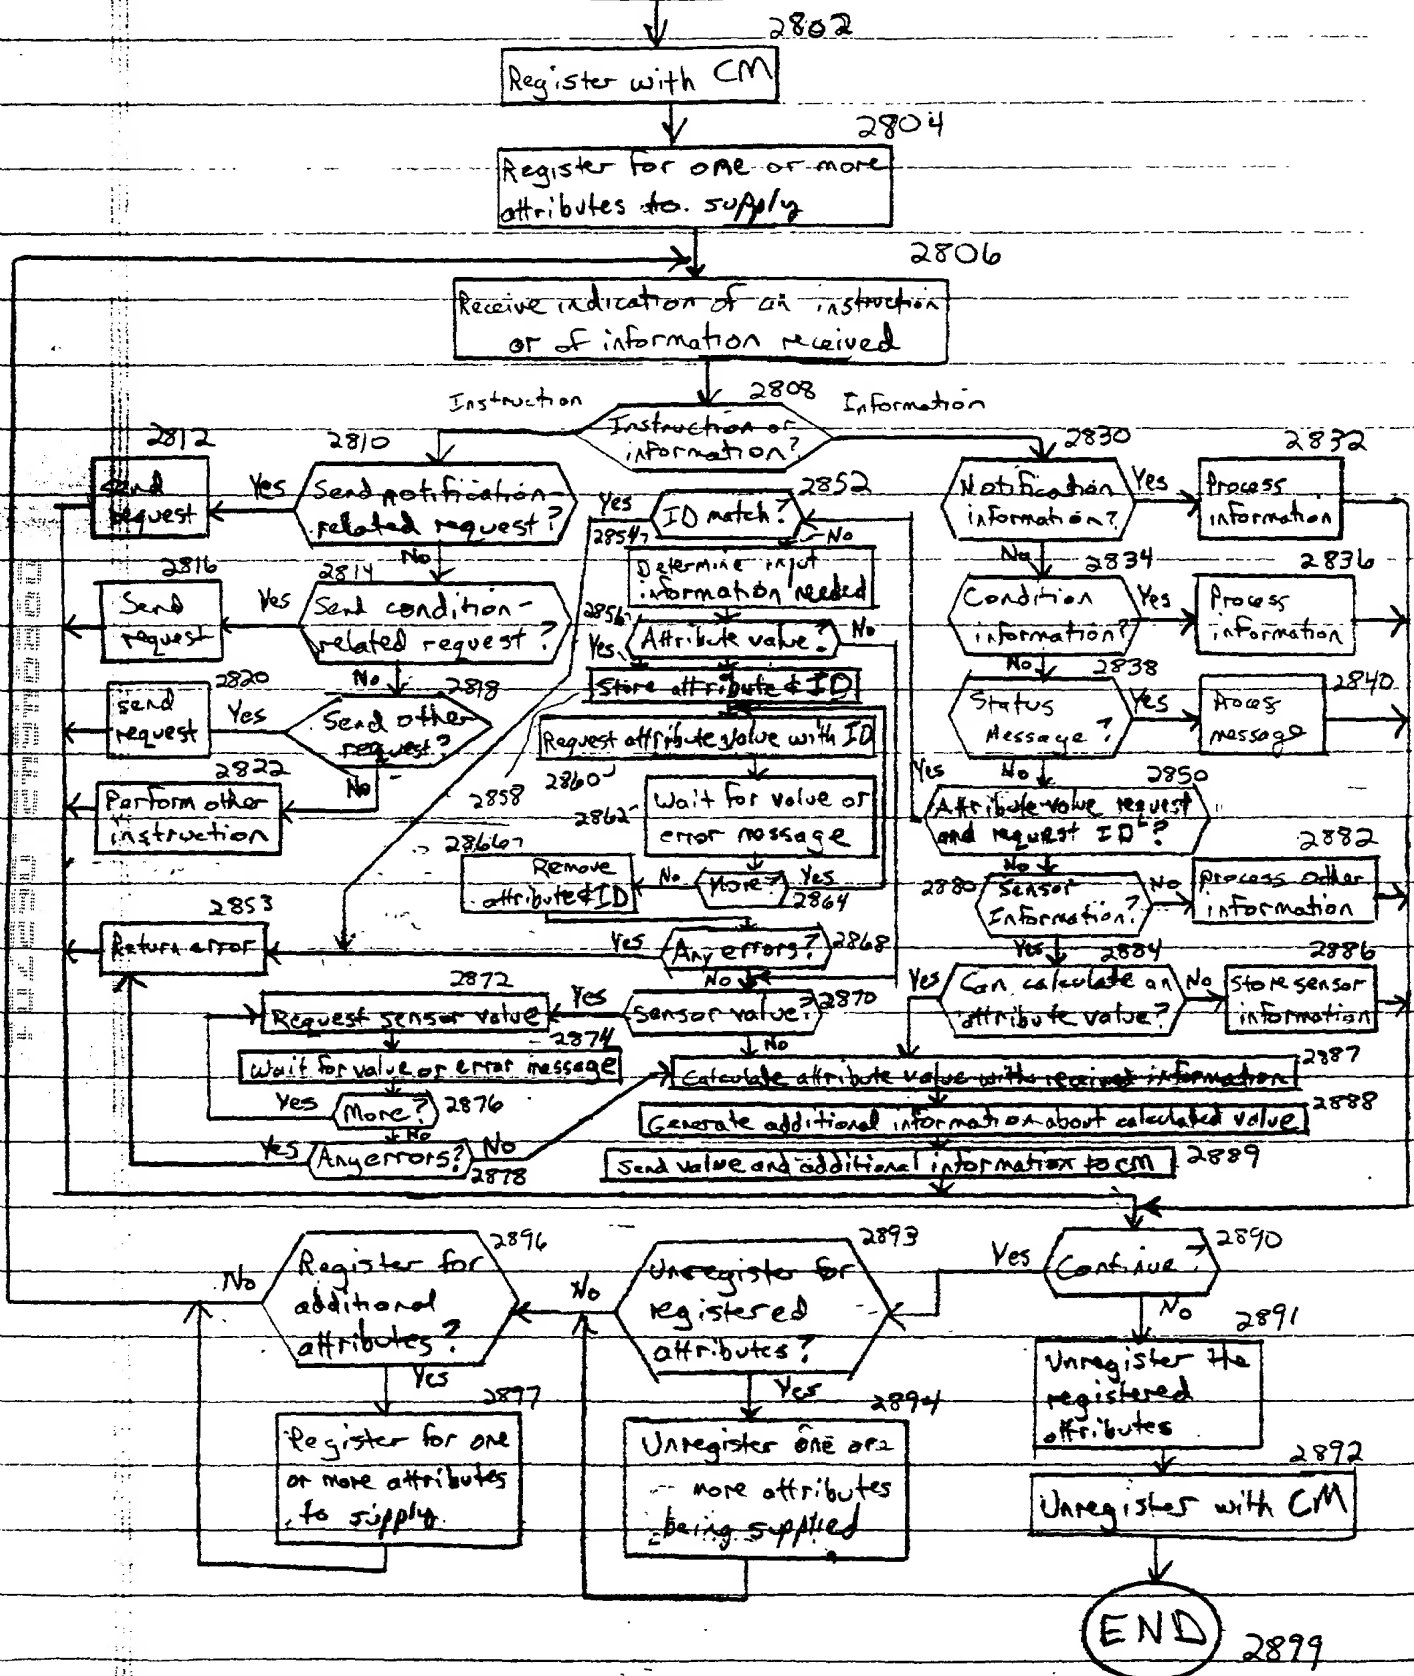 2802
Register with CM
2804
Register for one or more
attributes to supply
2806
Receive indication of an instruction
or of information received
2808
Instruction
Instruction or
information?
Information
2812
Send
request
Yes
2810
Send notification-
related request?
No
2816
Send
request
Yes
2814
Send condition-
related request?
No
2820
Send
request
Yes
2818
Send other
request?
No
2822
Perform other
instruction
2853
Return error
2852
Yes
ID match?
No
2854
Determine input
information needed
2856
Attribute value?
No
Yes
Store attribute & ID
2858
Request attribute value with ID
2860
2862
Wait for value or
error message
2866
Remove
attribute & ID
No
More?
Yes
2864
Yes
Any errors?
2868
No
2872
Request sensor value
Yes
Sensor value?
2870
No
2874
Wait for value or error message
Yes
More?
2876
No
Yes
Any errors?
No
2878
2830
Notification
information?
Yes
2832
Process
information
No
2834
Condition
information?
Yes
2836
Process
information
No
2838
Status
Message?
Yes
2840
Process
message
No
2850
Yes
Attribute value request
and request ID?
No
2880
Sensor
Information?
No
2882
Process other
information
Yes
2884
Yes
Can calculate an
attribute value?
No
2886
Store sensor
information
2887
Calculate attribute value with received information
2888
Generate additional information about calculated value
Send value and additional information to CM
2889
2890
Continue?
Yes
No
2891
Unregister the
registered
attributes
2892
Unregister with CM
END
2899
2893
Unregister for
registered
attributes?
No
Yes
2894
Unregister one or
more attributes
being supplied
2896
Register for
additional
attributes?
No
Yes
2897
Register for one
or more attributes
to supply